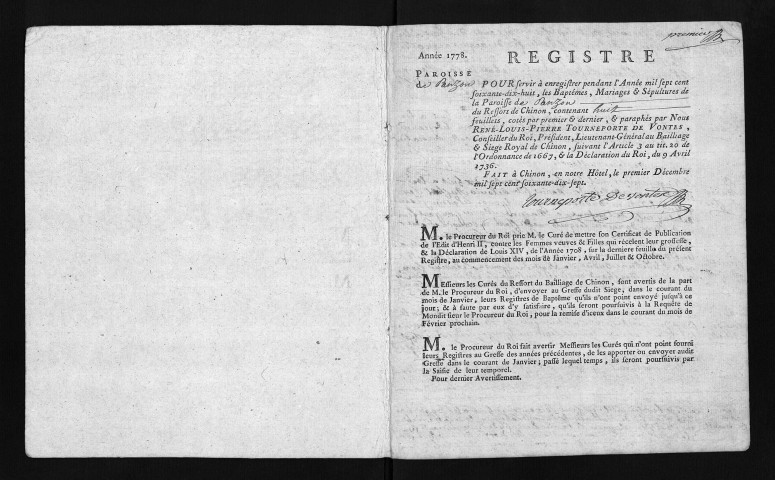 premier
Année 1778.
REGISTRE
PAROISSE
de Panzou
POUR servir à enregistrer pendant l'Année mil sept cent
soixante-dix-huit, les Baptêmes, Mariages & Sépultures de
la Paroisse de Panzou
du Ressort de Chinon, contenant huit
feuillets, cotés par premier & dernier, & paraphés par Nous
RENÉ-LOUIS-PIERRE TOURNEPORTE DE VONTES,
Conseiller du Roi, Président, Lieutenant-Général au Bailliage
& Siege Royal de Chinon, suivant l'Article 3 au tit. 20 de
l'Ordonnance de 1667, & la Déclaration du Roi, du 9 Avril
1736.
FAIT à Chinon, en notre Hôtel, le premier Décembre
mil sept cent soixante-dix-sept.
Tourneporte De vontes
M. le Procureur du Roi prie M. le Curé de mettre son Certificat de Publication
de l'Edit d'Henri II, contre les Femmes veuves & Filles qui récelent leur grossesse,
& la Déclaration de Louis XIV, de l'Année 1708, sur la derniere feuille du présent
Registre, au commencement des mois de Janvier, Avril, Juillet & Octobre.
MEssieurs les Curés du Ressort du Bailliage de Chinon, sont avertis de la part
de M. le Procureur du Roi, d'envoyer au Greffe dudit Siege, dans le courant du
mois de Janvier, leurs Registres de Baptême qu'ils n'ont point envoyé jusqu'à ce
jour; & à faute par eux d'y satisfaire, qu'ils seront poursuivis à la Requête de
Mondit sieur le Procureur du Roi, pour la remise d'iceux dans le courant du mois de
Février prochain.
M. le Procureur du Roi fait avertir Messieurs les Curés qui n'ont point fourni
leurs Registres au Greffe des années précédentes, de les apporter ou envoyer audit
Greffe dans le courant de Janvier; passé lequel temps, ils seront poursuivis par
la Saisie de leur temporel.
Pour dernier Avertissement.